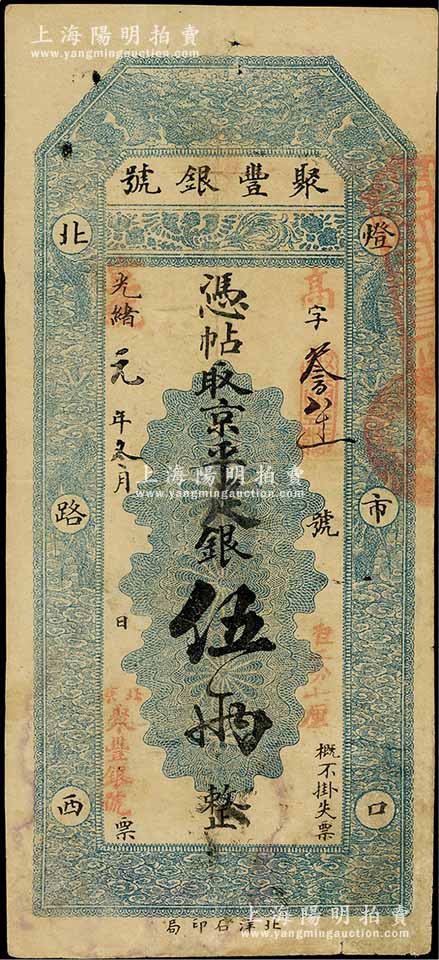 上海陽明拍賣
www.yangmingauction.com
聚豐銀號
燈市口
北路西
高字
號
憑帖取京平足銀伍兩整
光緒元年冬月
日
概不掛失票
北京
聚豐銀號
票
上海陽明拍賣
www.yangmingauction.com
北洋石印局
上海陽明拍賣
www.yangmingauction.com